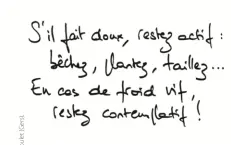 S'il fait doux, restez actif :
bêchez, plantez, taillez...
En cas de froid vif,
restez contemplatif !